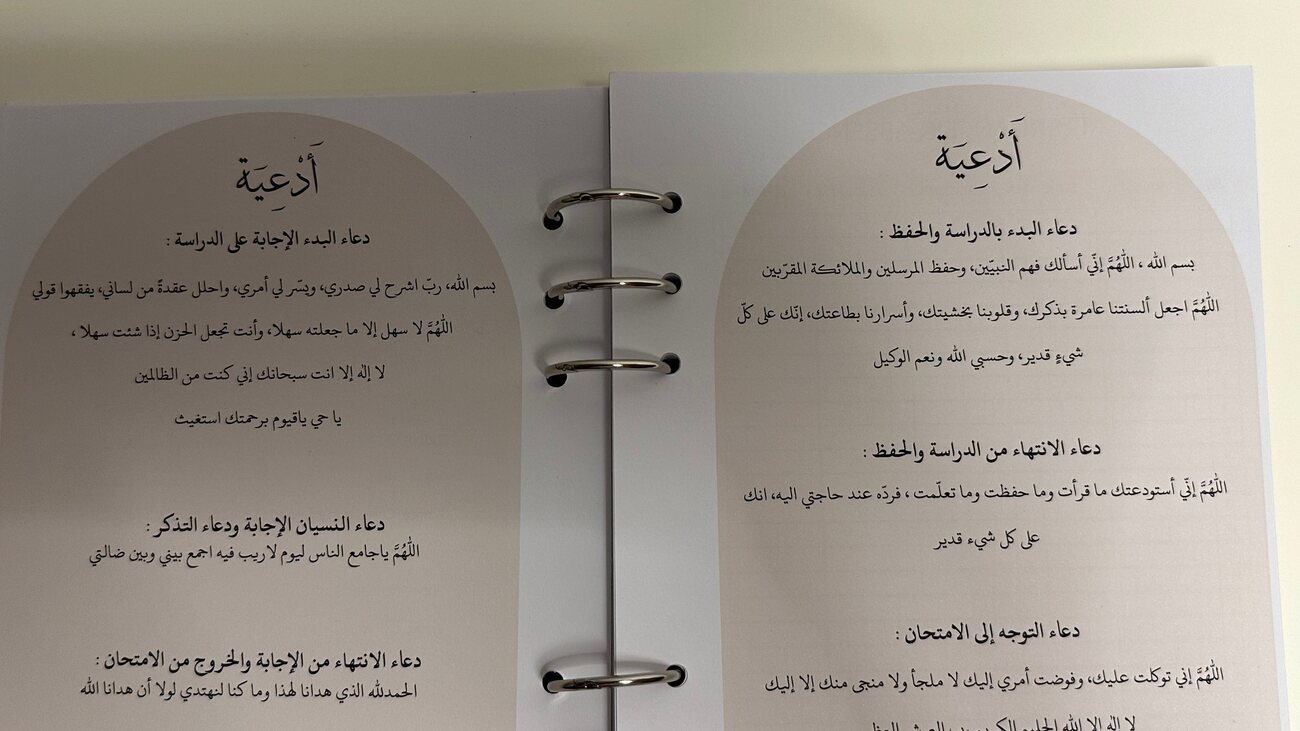 أَدْعِيَة
دعاء البدء بالدراسة والحفظ :
بسم الله ، اللّهُمَّ إنّي أسألك فهم النبيّين، وحفظ المرسلين والملائكة المقرّبين
اللّهُمَّ اجعل ألسنتنا عامرة بذكرك، وقلوبنا بخشيتك، وأسرارنا بطاعتك، إنّك على كلّ
شيءٍ قدير، وحسبي الله ونعم الوكيل
دعاء الانتهاء من الدراسة والحفظ :
اللّهُمَّ إنّي أستودعتك ما قرأت وما حفظت وما تعلّمت ، فردّه عند حاجتي اليه، انك
على كل شيء قدير
دعاء التوجه إلى الامتحان :
اللّهُمَّ إني توكلت عليك، وفوضت أمري إليك لا ملجأ ولا منجى منك إلا إليك
لا إله إلا الله الحليم الكريم رب العرش
أَدْعِيَة
دعاء البدء الإجابة على الدراسة :
بسم الله، ربّ اشرح لي صدري، ويسّر لي أمري، واحلل عقدةً من لساني، يفقهوا قولي
اللّهُمَّ لا سهل إلا ما جعلته سهلا، وأنت تجعل الحزن إذا شئت سهلا ،
لا إله إلا انت سبحانك إني كنت من الظالمين
يا حي ياقيوم برحمتك استغيث
دعاء النسيان الإجابة ودعاء التذكر :
اللّهُمَّ ياجامع الناس ليوم لاريب فيه اجمع بيني وبين ضالتي
دعاء الانتهاء من الإجابة والخروج من الامتحان :
الحمدلله الذي هدانا لهذا وما كنا لنهتدي لولا أن هدانا الله